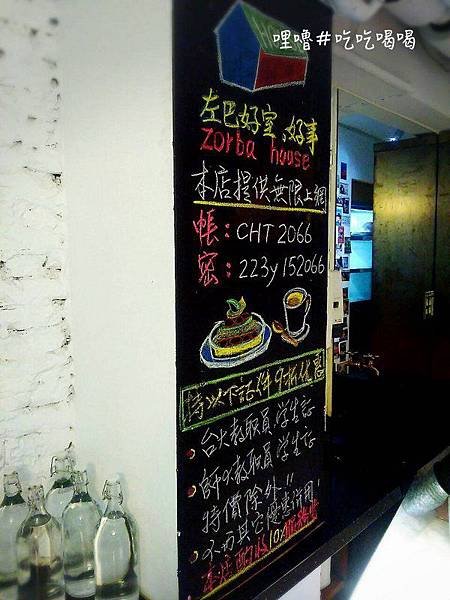 哩嚕#吃吃喝喝
左巴好室、好事
Zorba house
本店提供無限上網
帳:CHT 2066
密:223y152066
持以下證件9折優惠
台大教職員,學生証
師大教職員,學生証
特價除外!!
不與其它優惠併用
本店酌收10%服務費